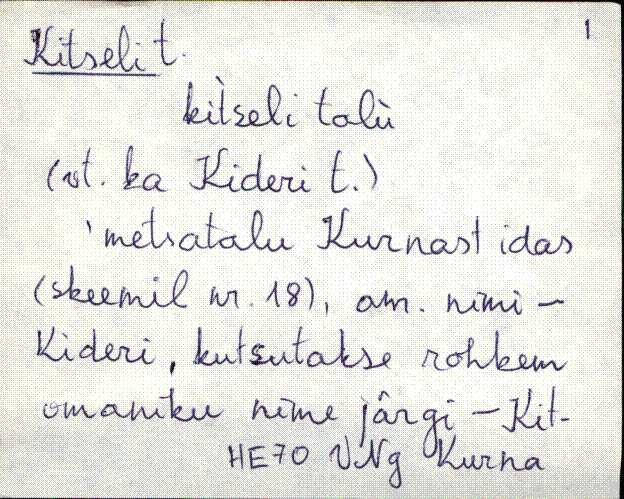 1
Kitseli t.
kìtseli talù
(vt. ka Kideri t.)
'metsatalu Kurnast idas
(skeemil nr. 18), am. nimi –
Kideri, kutsutakse rohkem
omaniku nime järgi – Kit-
HE70 VNg Kurna